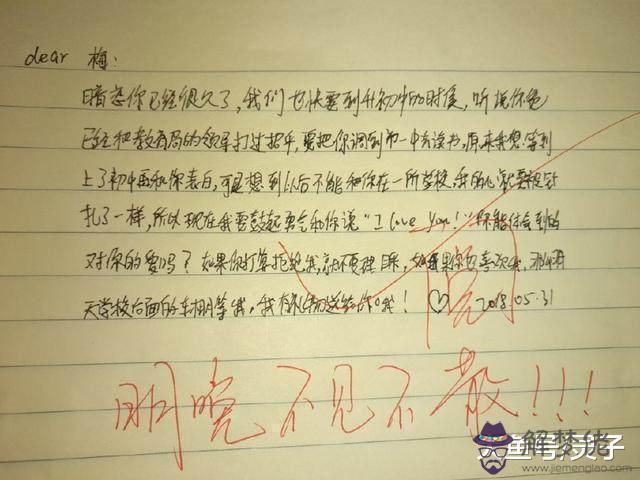 dear 梅:
暗恋你已经很久了,我们也快要到升初中的时候,听说你爸
已经和教育局的领导打过招乎,要把你调到市一中去读书,原来我想等到
上了初中再和你表白,可是想到以后不能和你在一所学校,我的心就要被针
扎了一样,所以现在我要鼓起勇气和你说“I love You!”你能体会到的
对你的爱吗?如果你打算拒绝我,就不要理 如果你也喜欢我,
天学校后面的车棚等我,我有礼物送给你哦! ♡ 2018.05.31
明晚不见不散!!!
大鱼号:灵子
解梦佬
www.jiemenglao.com